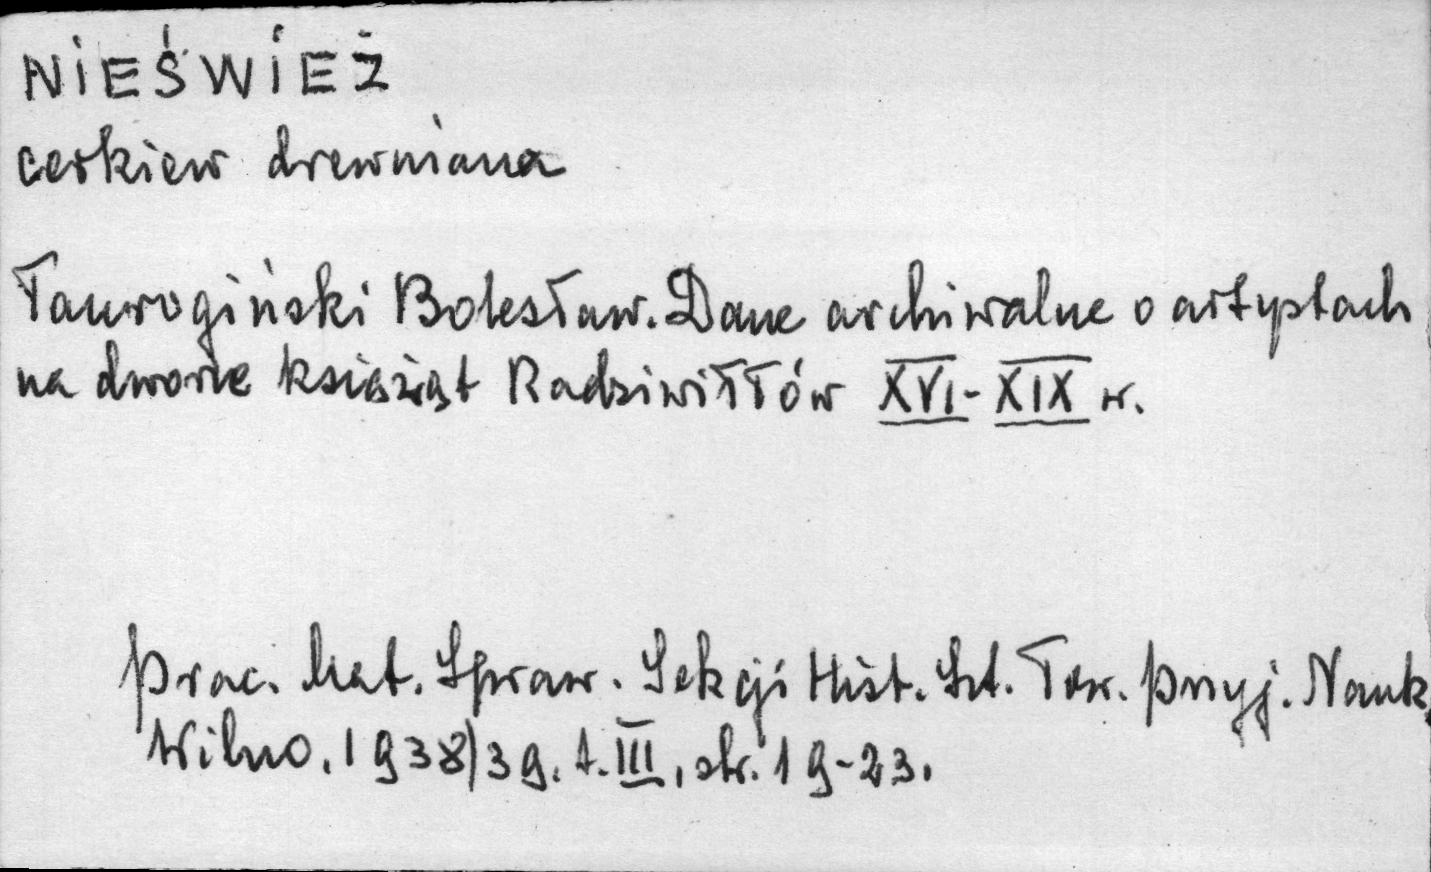 NIEŚWIEŻ
cerkiew drewniana
Taurogiński Bolesław. Dane archiwalne o artystach
na dworze książąt Radziwiłłów XVI-XIX w.
Prac. Mat. Spraw. Sekcji Hist. Szt. Tow. Przyj. Nauk,
Wilno, 1938/39. t. III, str. 19-23.